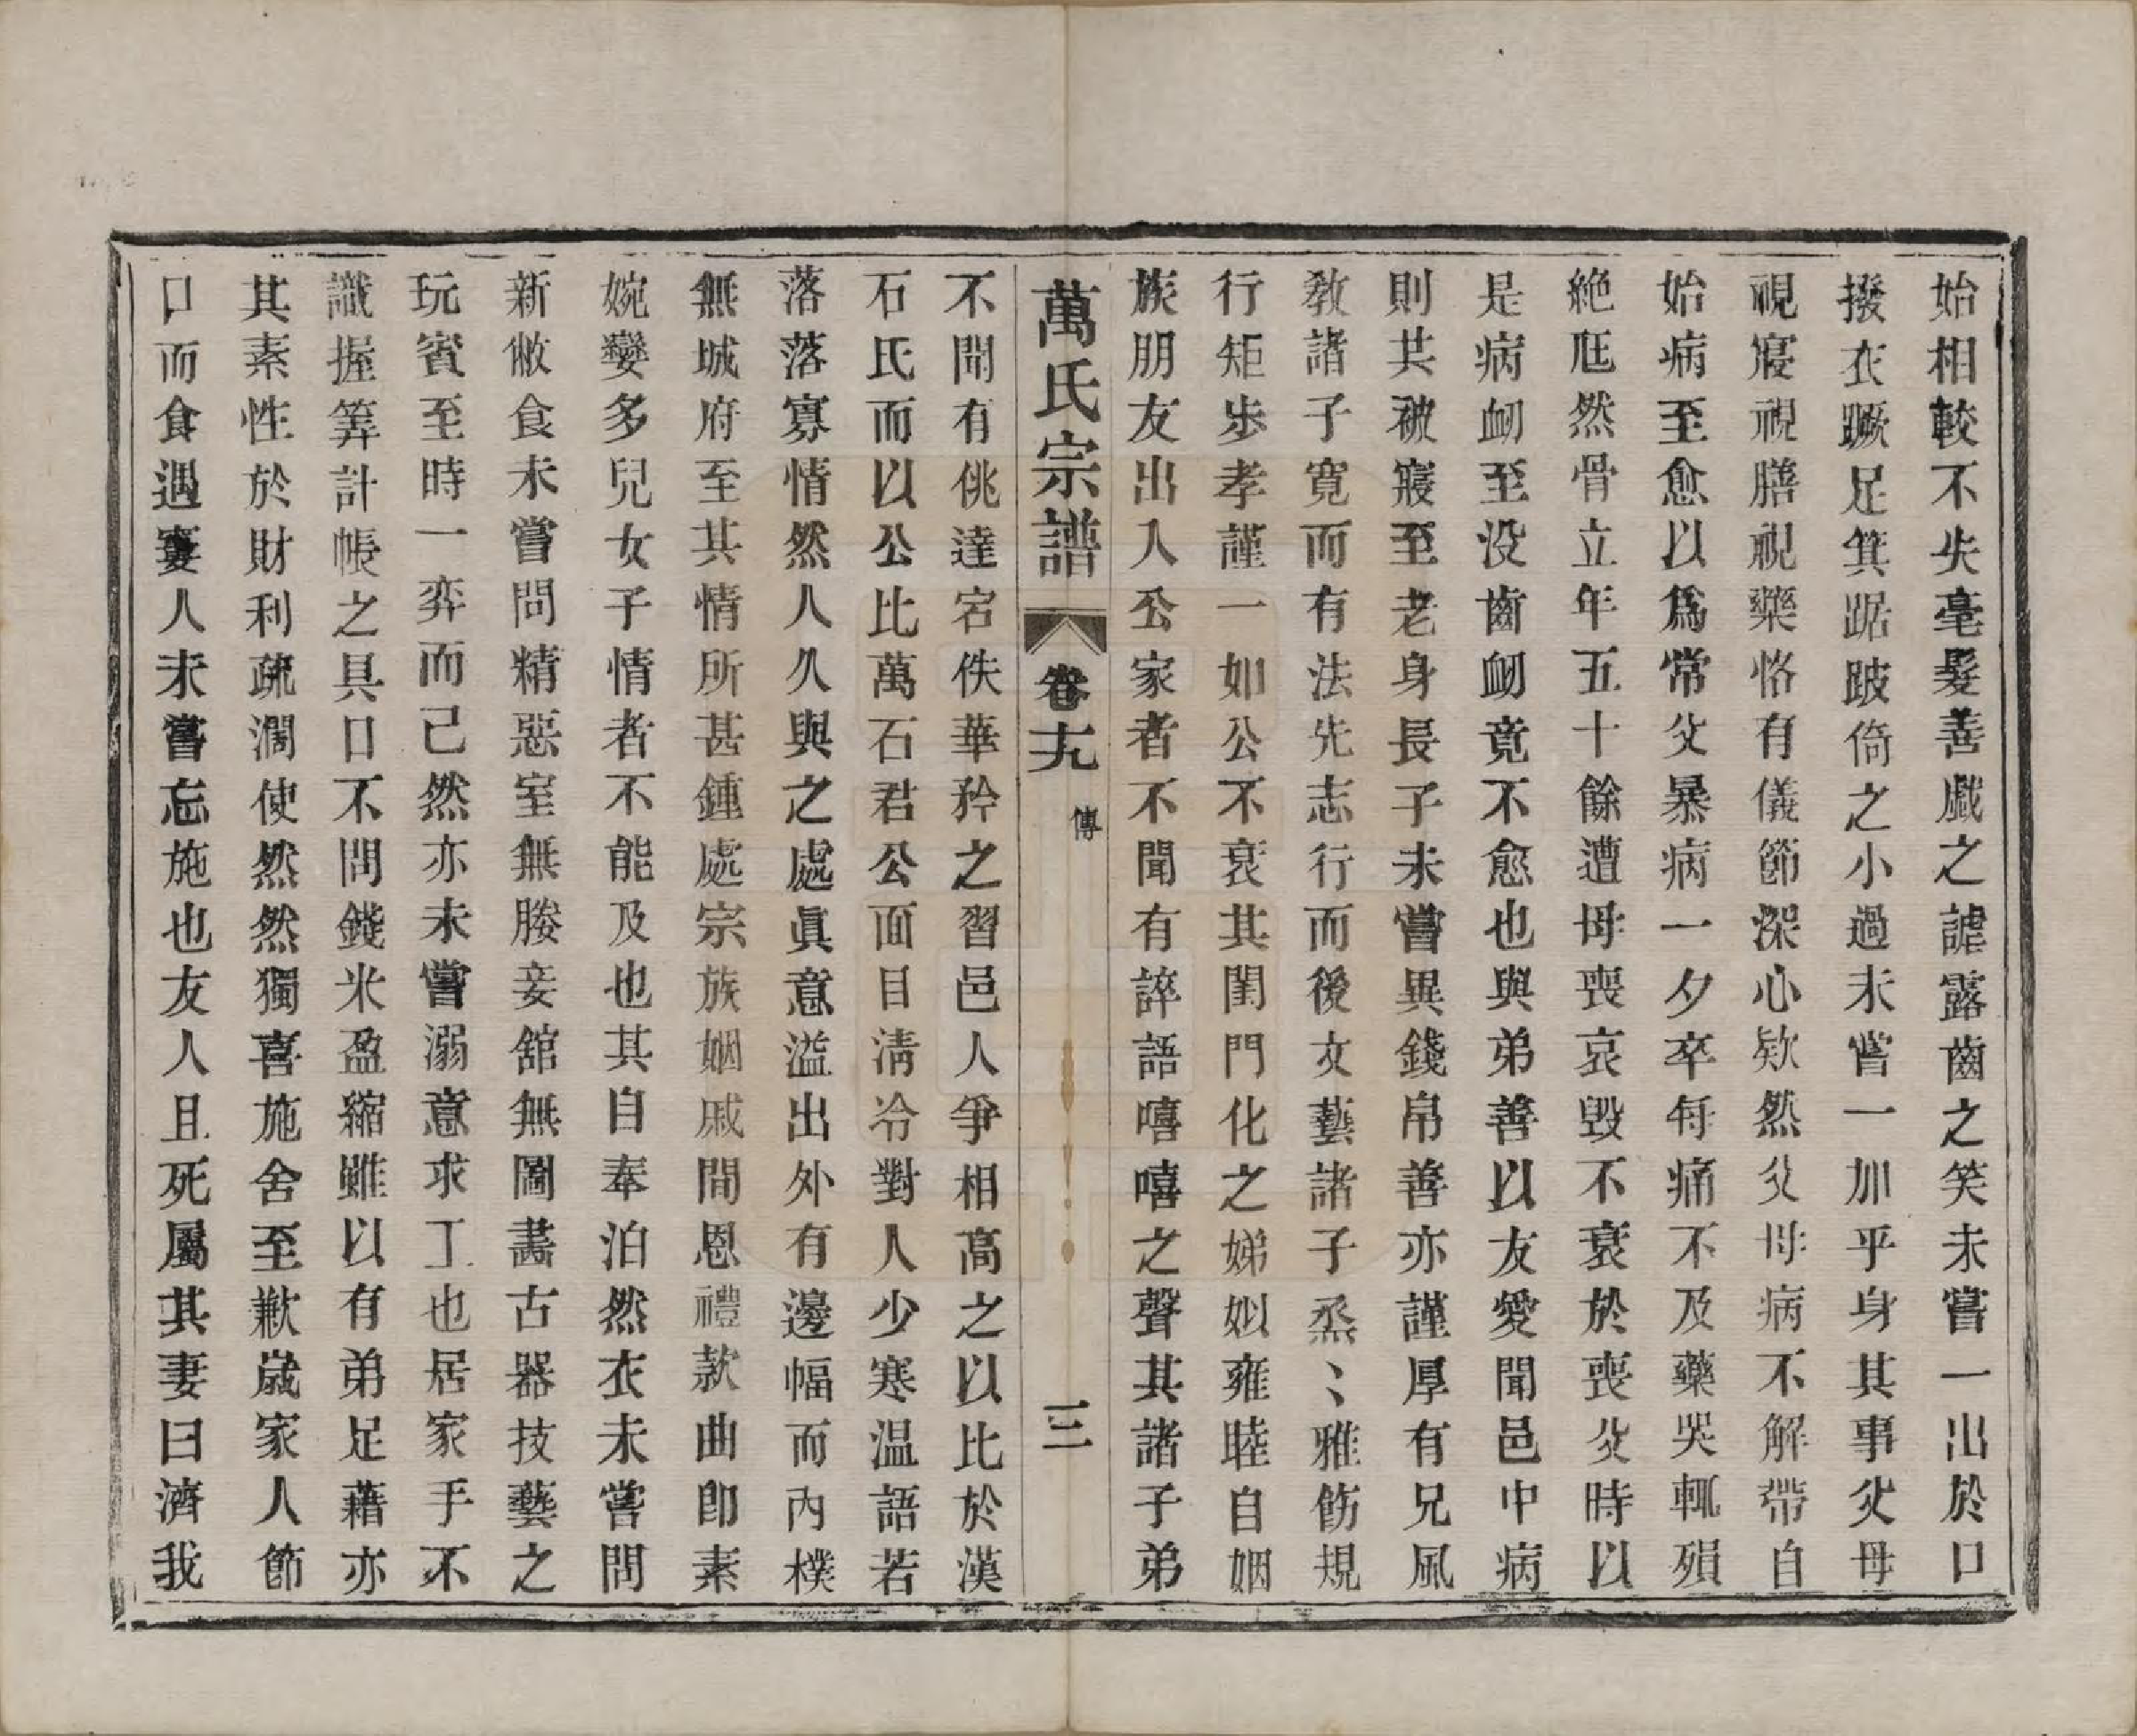 始相較不失毫髮善戲之謔露齒之笑未嘗一出於口
撥衣蹶足箕踞跛倚之小過未嘗一加乎身其事父母
視寢視膳視藥恪有儀節深心欵然父母病不解帶自
始病至愈以爲常父暴病一夕卒每痛不及藥哭輒殞
絶尫然骨立年五十餘遭母喪哀毁不衰於喪父時以
是病衂至没齒衂竟不愈也與弟善以友愛聞邑中病
則共被寢至老身長子未嘗異錢帛善亦謹厚有兄風
教諸子寬而有法先志行而後文藝諸子烝〻雅飭規
行矩步孝謹一如公不衰其閨門化之娣姒雍睦自姻
族朋友出入公家者不聞有誶語嘻嘻之聲其諸子弟
萬氏宗譜 卷十九 傳 三
不聞有佻達宕佚華矜之習邑人爭相高之以比於漢
石氏而以公比萬石君公面目淸冷對人少寒温語若
落落寡情然人久與之處眞意溢出外有邊幅而內樸
無城府至其情所甚鍾處宗族姻戚間恩禮款曲卽素
婉孌多兒女子情者不能及也其自奉泊然衣未嘗問
新敝食未嘗問精惡室無媵妾舘無圖畵古器技藝之
玩賓至時一弈而已然亦未嘗溺意求工也居家手不
識握筭計帳之具口不問錢米盈縮雖以有弟足藉亦
其素性於財利疏濶使然然獨喜施舍至歉歲家人節
口而食遇窶人未嘗忘施也友人且死屬其妻曰濟我